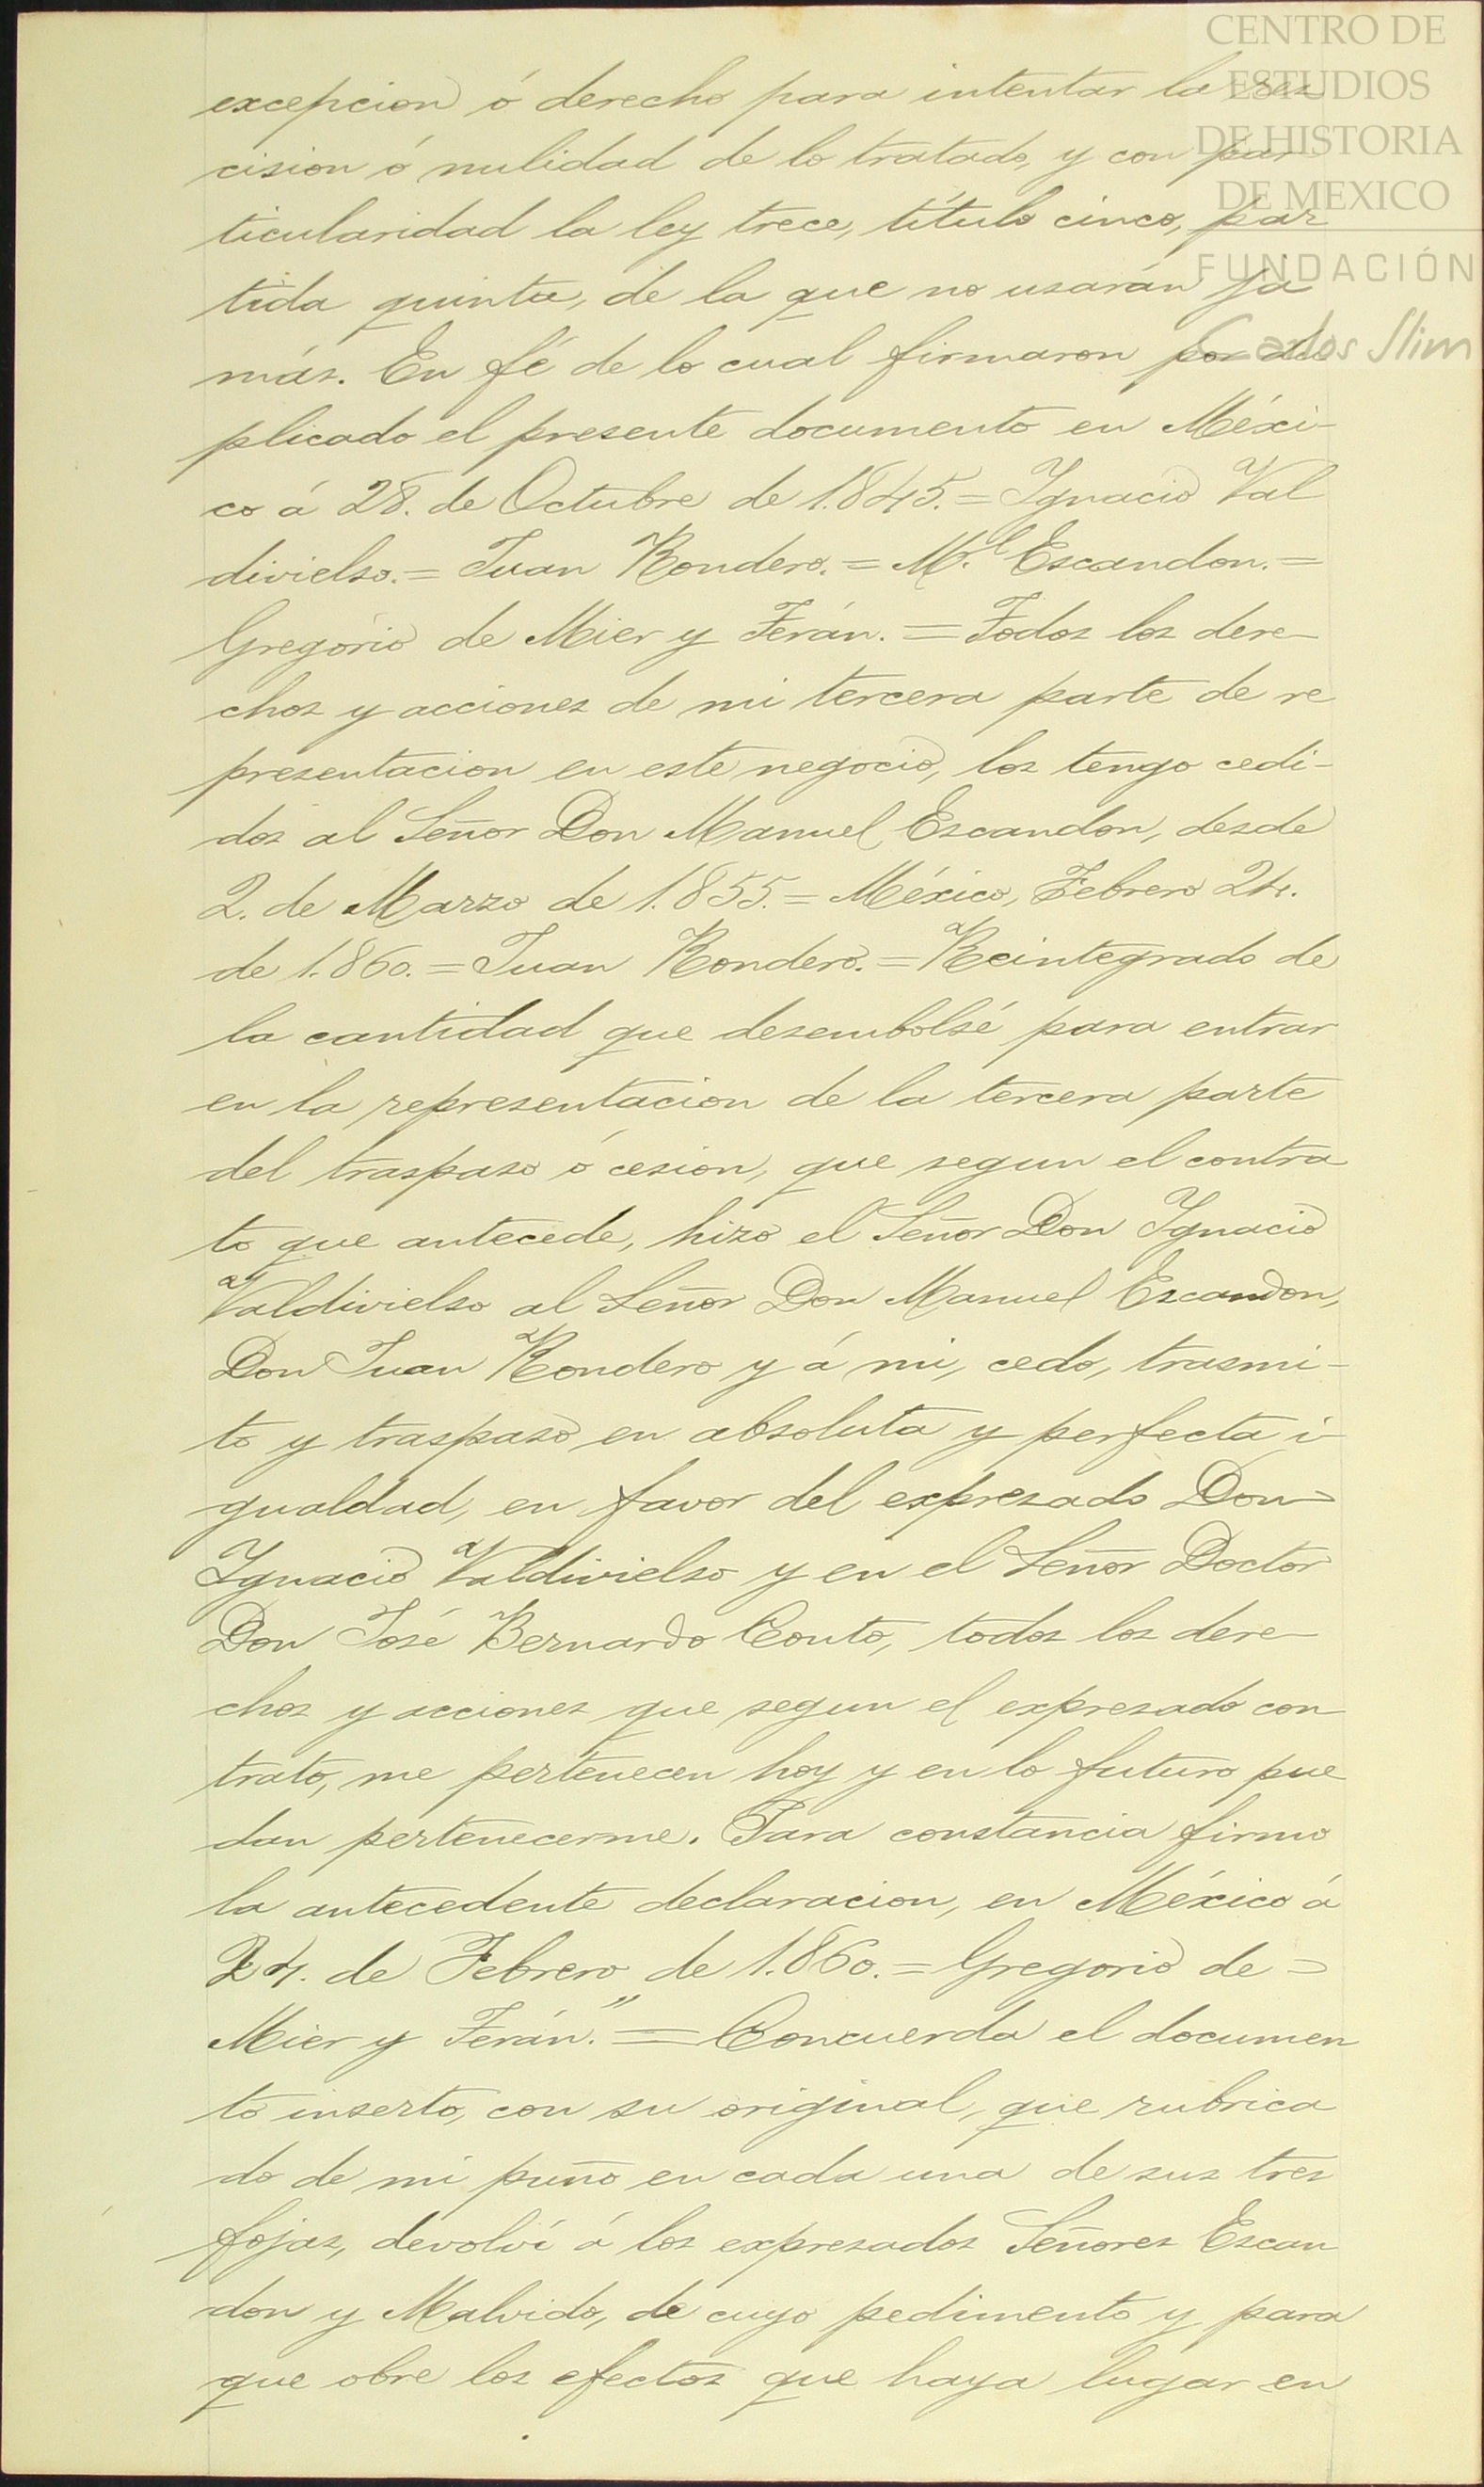 CENTRO DE
ESTUDIOS
DE HISTORIA
DE MEXICO
FUNDACIÓN
Carlos Slim
excepcion ó derecho para intentar la res
cision ó nulidad de lo tratado, y con par
ticularidad la ley trece, título cinco, par
tida quinta, de la que no usarán ja
más. En fé de lo cual firmaron por du
plicado el presente documento en Méxi-
co á 28. de Octubre de 1.845. = Ignacio Val
divielso. = Juan Rondero. = M.l Escandon. =
Gregorio de Mier y Terán. = Todos los dere-
chos y acciones de mi tercera parte de re
presentacion en este negocio, los tengo cedi-
dos al Señor Don Manuel Escandon, desde
2. de Marzo de 1.855. = México, Febrero 24.
de 1.860. = Juan Rondero. = Reintegrado de
la cantidad que desembolsé para entrar
en la representacion de la tercera parte
del traspaso ó cesion, que segun el contra
to que antecede, hizo el Señor Don Ignacio
Valdivielso al Señor Don Manuel Escandon,
Don Juan Rondero y á mi, cedo, trasmi-
to y traspaso en absoluta y perfecta i-
gualdad, en favor del expresado Don =
Ignacio Valdivielso y en el Señor Doctor
Don José Bernardo Couto, todos los dere-
chos y acciones que segun el expresado con
trato, me pertenecen hoy y en lo futuro pue
dan pertenecerme. Para constancia firmo
la antecedente declaracion, en México á
24. de Febrero de 1.860. = Gregorio de =
Mier y Terán." = Concuerda el documen
to inserto, con su original, que rubrica
do de mi puño en cada una de sus tres
fojas, devolví á los expresados Señores Escan
don y Malvido, de cuyo pedimento y para
que obre los efectos que haya lugar en